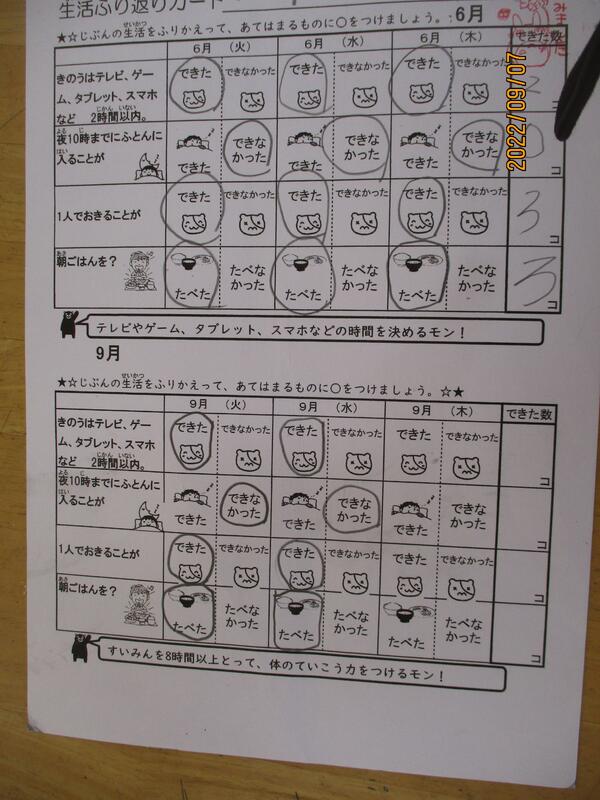 生活ふり返りカード
★☆じぶんの生活をふりかえって、あてはまるものに〇をつけましょう。:6月
せいかつ
6月 （火） 6月 （水） 6月 （木） できた数
きのうはテレビ、ゲーム、タブレット、スマホなど 2時間以内。
じかん いない
できた できなかった できた できなかった できた できなかった
夜10時までにふとんに入ることが
よる じ
はい
できた できなかった できた できなかった できた できなかった
コ
1人でおきることが
できた できなかった できた できなかった できた できなかった
3 コ
朝ごはんを？
あさ
たべた たべなかった たべた たべなかった たべた たべなかった
3 コ
テレビやゲーム、タブレット、スマホなどの時間を決めるモン！
9月
せいかつ
★☆じぶんの生活をふりかえって、あてはまるものに〇をつけましょう。☆★
9月 （火） 9月 （水） 9月 （木） できた数
きのうはテレビ、ゲーム、タブレット、スマホなど 2時間以内。
じかん いない
できた できなかった できた できなかった できた できなかった
コ
夜10時までにふとんに入ることが
よる じ
はい
できた できなかった できた できなかった できた できなかった
コ
1人でおきることが
できた できなかった できた できなかった できた できなかった
コ
朝ごはんを？
あさ
たべた たべなかった たべた たべなかった たべた たべなかった
コ
すいみんを8時間以上とって、体のていこう力をつけるモン！
2022/09/07